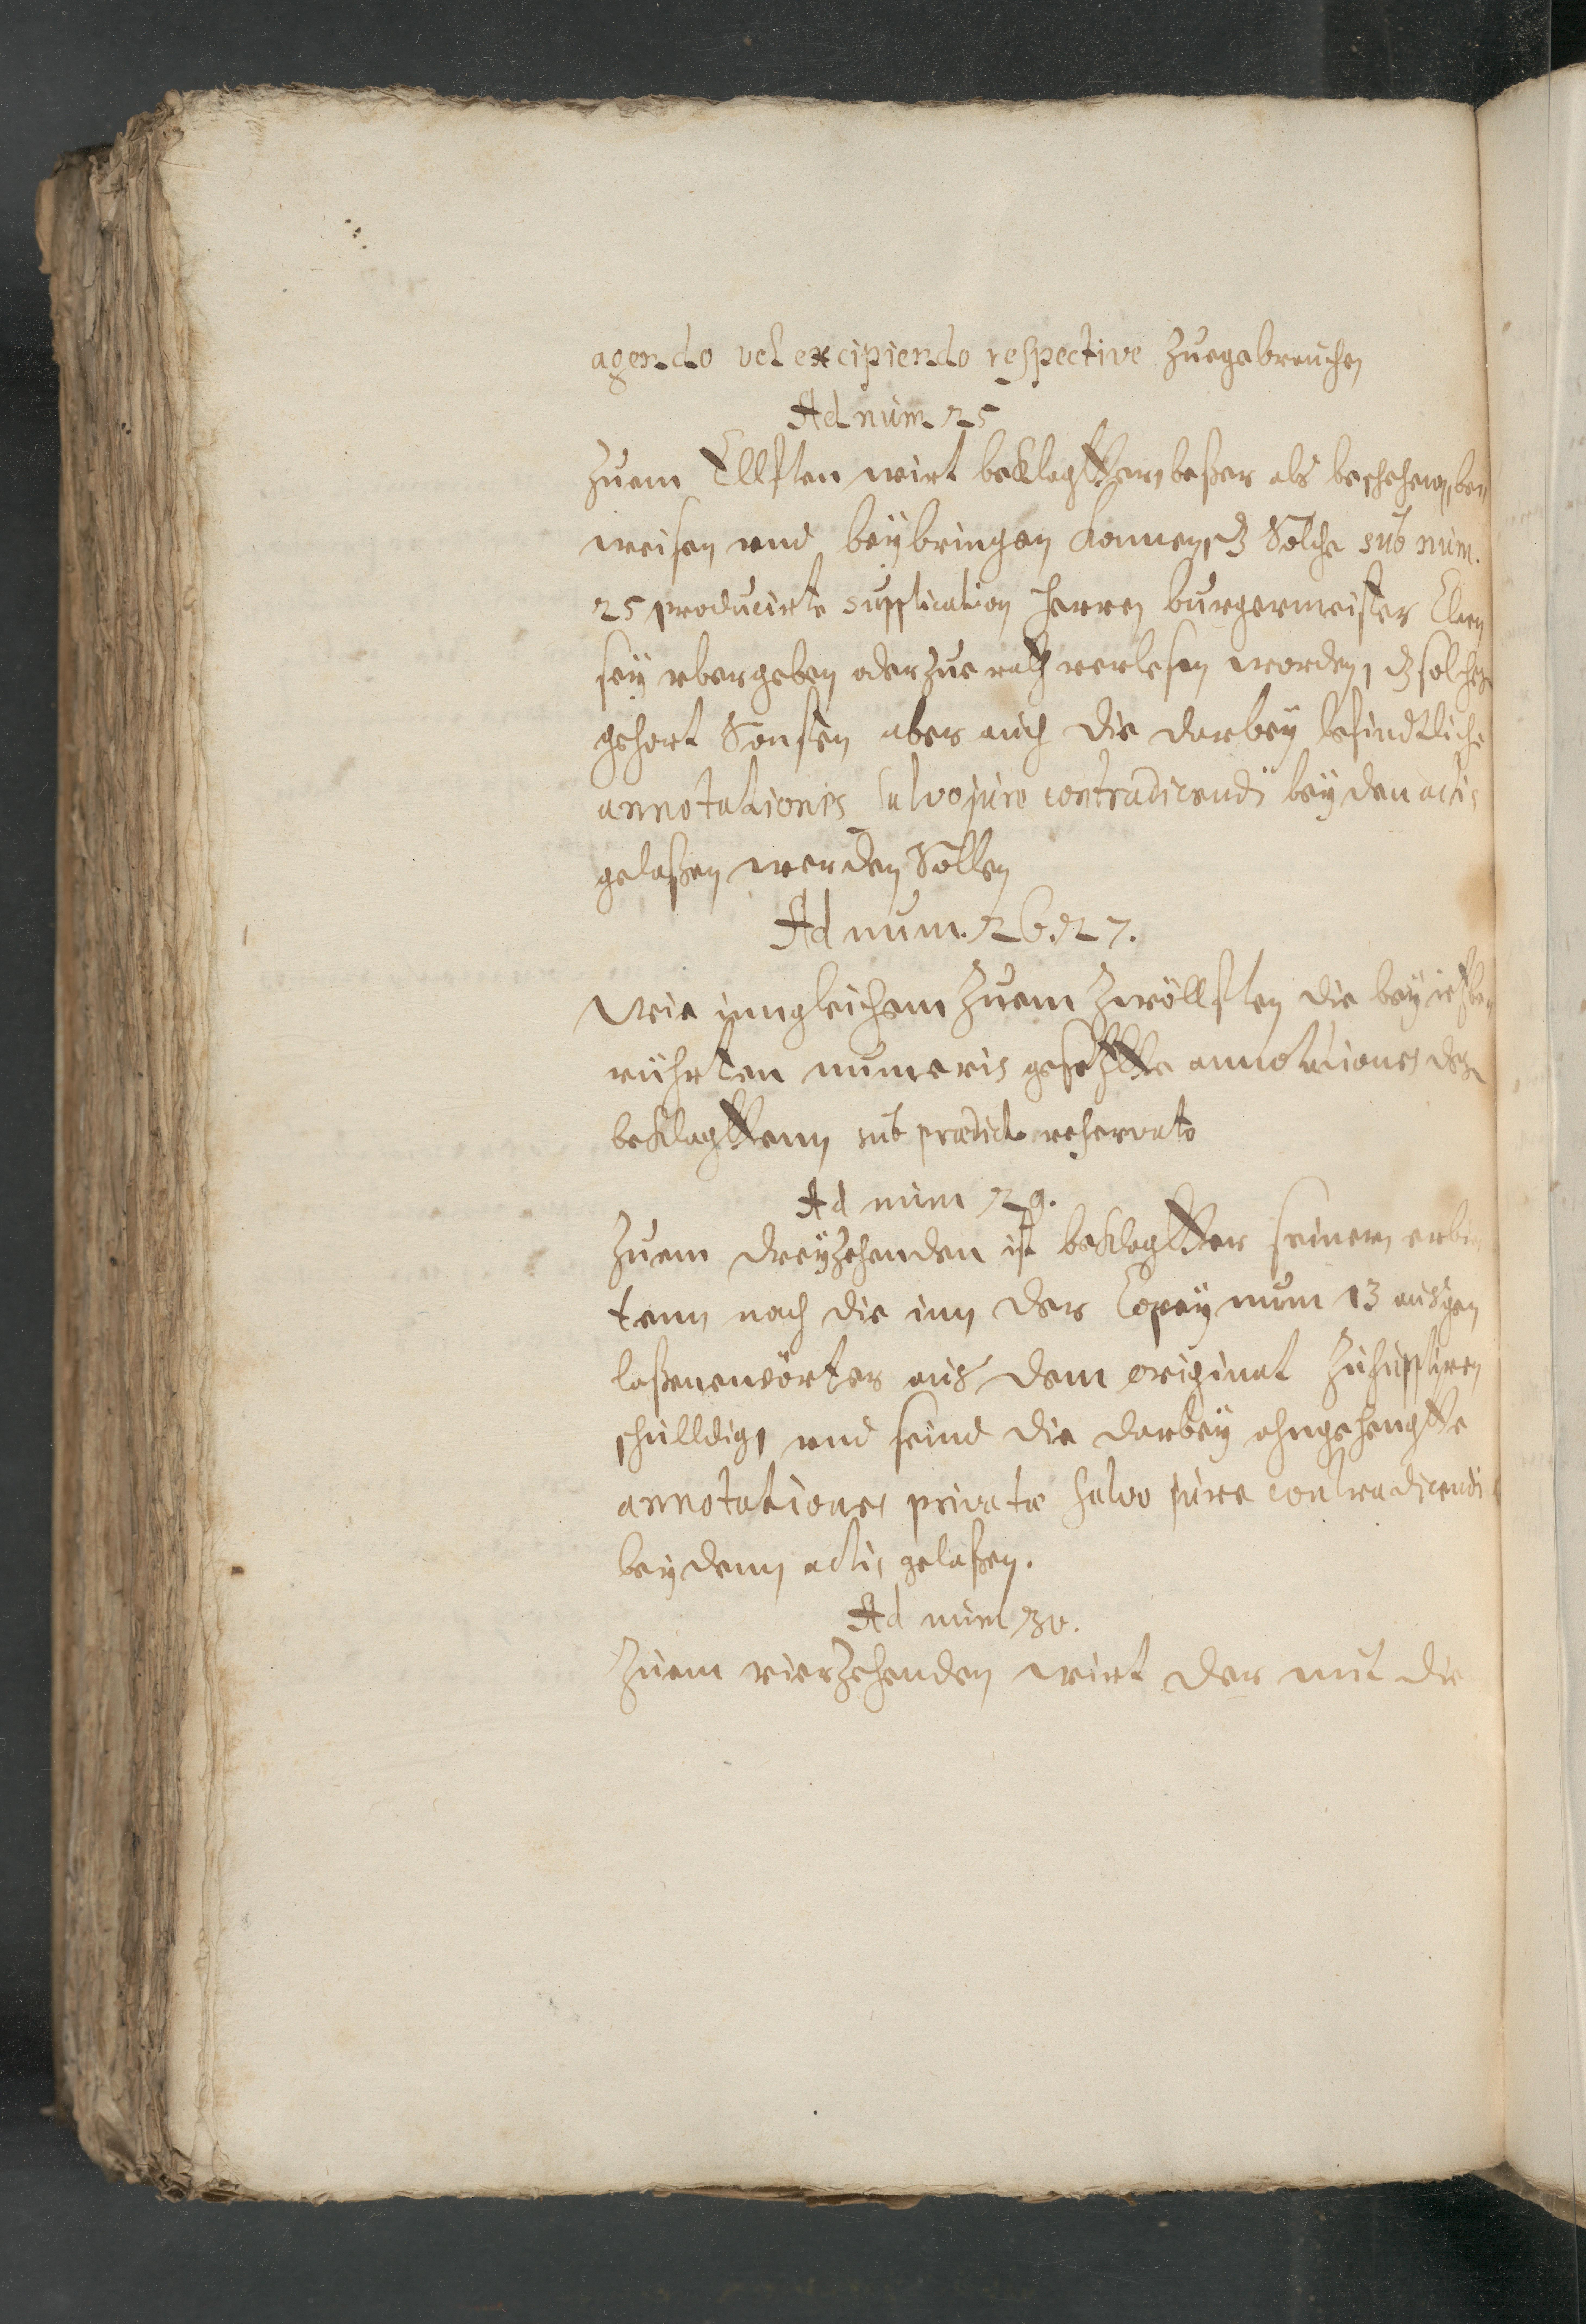 agendo vel excipiendo respective Zuegebrauchen
Ad num. 25
Zuem Ellften wirt beklagtter beßer als beschehen, be¬
weisen vnd beybringen konnen, dz Solche sub num.
25 producirte supplication herren burgermeister
sey vbergeben oder Zue rath verlesen worden, dz solches
gehort Sonsten aber auch die darbey befindtliche
annotationes salvo jure contradicendi bey den actis
gelaßen werden Sollen
Ad num. 26. 27.
Wie inngleichem Zuem Zwöllften die bey ietzbe¬
rührten numeris gesetztte annotationes des
beklagttenn sub praedicto reservato
Ad num 29.
Zuem dreyzehenden ist beklagtter seinem erbie¬
tenn nach die inn der Copey num 13 ausge¬
laßene wörter aus dem original Zu suppliren
schulldig, vnd seind die darbey ahngehengtte
annotationes privatae salvo jure contradicendi
bey denn actis gelaßen.
Ad num 30.
Zuem vierzehenden wirt der mit die